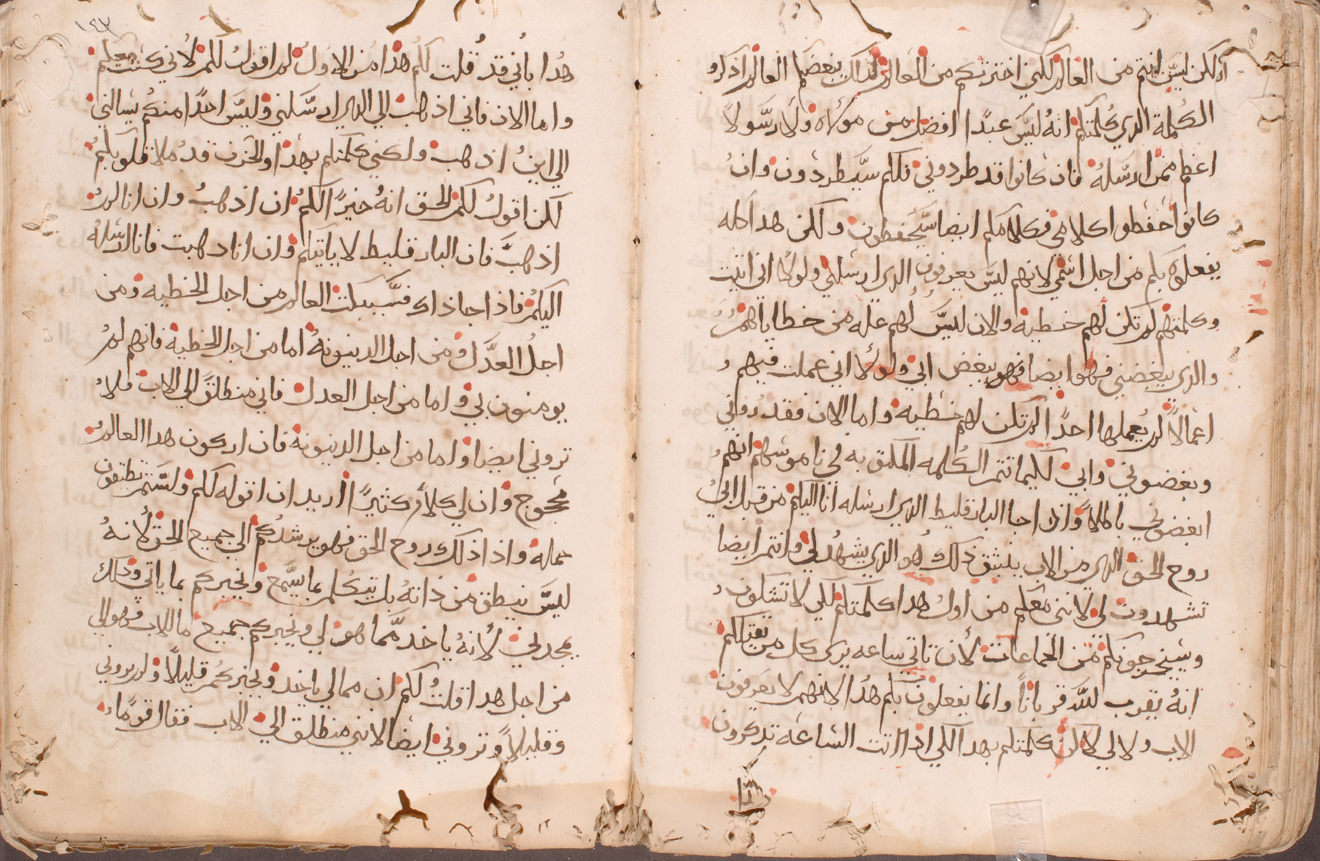 لكن ليس انتم من العالم لكني اخترتكم من العالم لذلك يبغضكم العالم اذكرو
الكلمة الدي كلمتكم انه ليس عبدا افضل من مولاه ولا رسولا
اعظم ممن ارسله فان كانوا قد طردوني فلكم سيطردون وان
كانوا حفظوا كلامي فكلامكم ايضا سيحفظون ولكن هدا كله
يفعلوه بكم من اجل اسمي لانهم ليس يعرفون الدي ارسلني ولولا اني اتيت
وكلمتهم لم تكن لهم خطية والان ليس لهم عله من خطاياهم
والدي يبغضني فهوا ايضا فهو يبغض ابي ولولا اني عملت فيهم
اعمالا لم يعملها احدا لم تكن لهم خطية واما الان فقد روني
وبغضوني وابي لكيما تتم الكلمه المكتوبه في ناموسهم انهم
ابغضوني باطلا واذا جا البارقليط الدي ارسله انا اليكم من قبل ابي
روح الحق الدي من الاب ينبثق دلك هو الدي يشهد لي وانتم ايضا
تشهدون لي لانني معكم من اول هدا كلمتكم لكي لا تشكون
وسيخرجونكم من الجماعات لان تاتي ساعه يرى كل من يقتلكم
انه يقرب لله قربانا وانما يفعلون بكم هدا لانهم لا يعرفون
الاب ولا لي لاكن كلمتكم بهدا لكي اذا اتت الساعة تدكرون
هدا باني قد قلت لكم هدا من الاول لم اقول لكم لاني كنت معكم
واما الان فاني اذهب الي الدي ارسلني وليس احدا منكم يسالني
الي اين اذهب ولكني كلمتكم بهدا والحزن قد ملا قلوبكم
لكن اقول لكم الحق انه خيرا لكم ان اذهب وان انا لم
اذهب فان البارقليط لا ياتيكم وان انا دهبت فانا ارسله
اليكم فاذا جا ذاك فسيبكت العالم من اجل الخطيه ومن
اجل العدل ومن اجل الدينونة اما من اجل الخطية فانهم لم
يومنون بي واما من اجل العدل فاني منطلق الي الاب فلا
تروني ايضا واما من اجل الدينونة فان اركون هدا العالم
محجوج وان لي كلام كثيرا اريد ان اقوله لكم ولستم تطيقون
حمله واذا دلك روح الحق فهو يرشدكم الي جميع الحق لانه
ليس ينطق من ذاته بل يتكلم بما يسمع ويخبركم بما ياتي ودلك
يمجدني لانه ياخد مما هو لي ويخبركم جميع ما للاب فهو لي
من اجل هدا قلت لكم ان مما لي ياخد ويخبركم قليلا ولا تروني
وقليلا وتروني ايضا لانني منطلق الي الاب فقال قوما